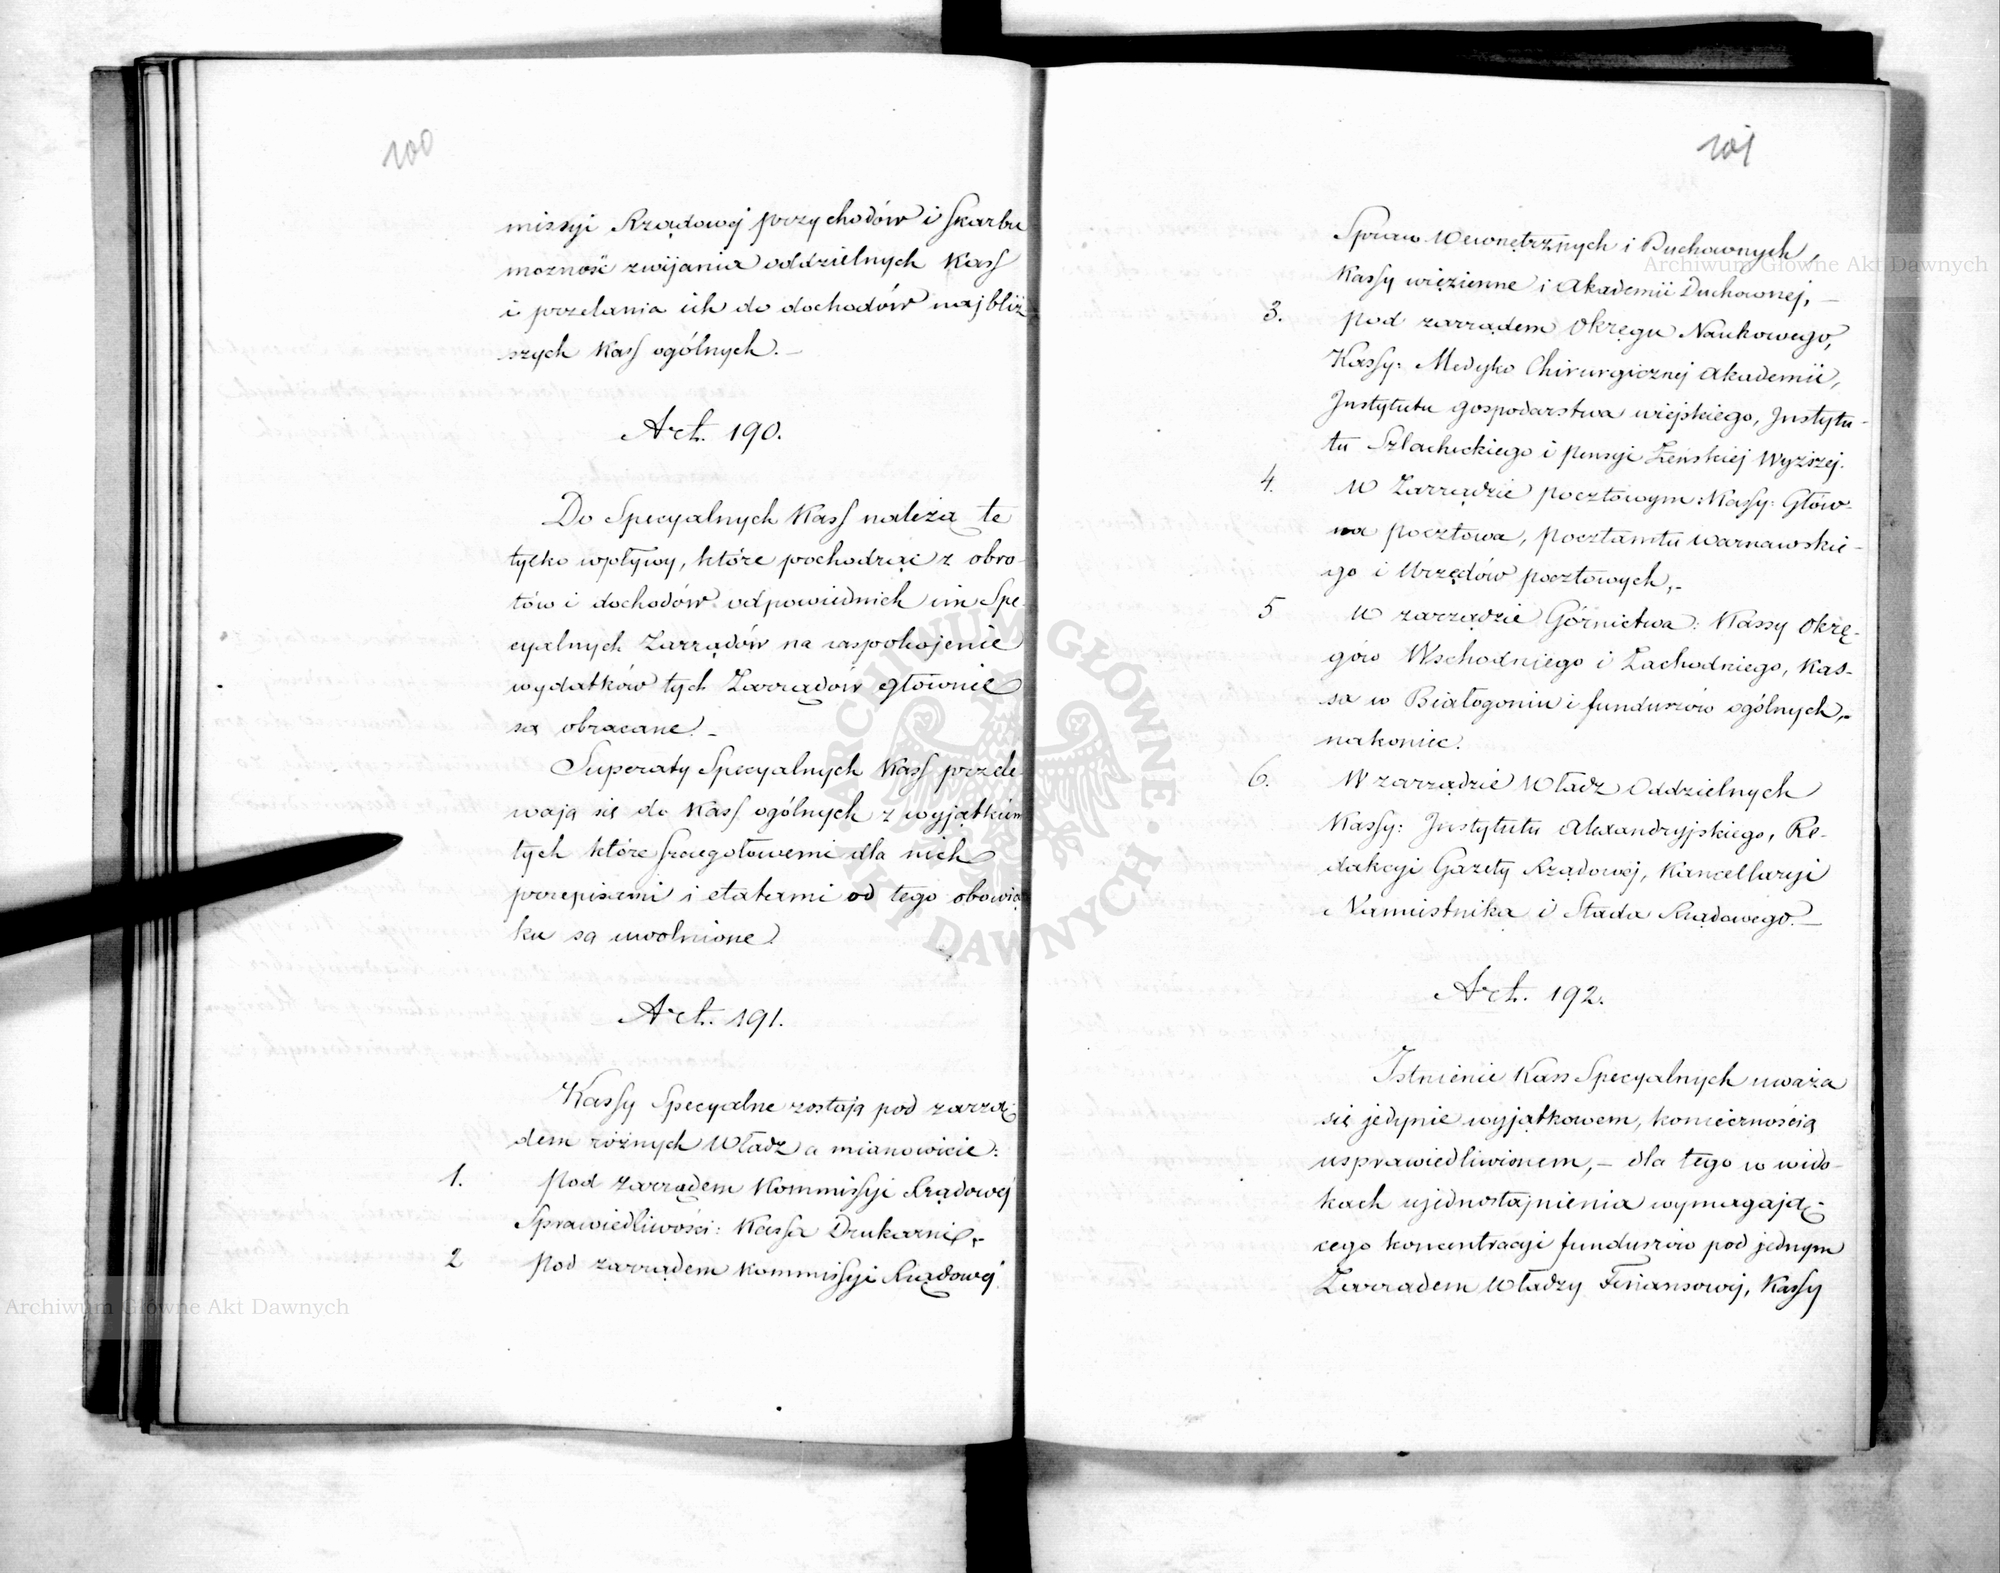 100
missyi Rządowej przychodów i Skarbu
możność zwijania oddzielnych Kass
i przelania ich do dochodów najbliż
szych Kass ogólnych. –
Art. 190.
Do Specyalnych Kass należą te
tylko wpływy, które pochodząc z obro
tów i dochodów odpowiednich im Spe-
cyalnych Zarządów na zaspokojenie
wydatków tych Zarządow głównie
są obracane. –
Superaty Specyalnych Kass przele
wają się do Kass ogólnych z wyjątkiem
tych które szczegołowemi dla nich
przepisami i etatami od tego obowią
ku są uwolnione.
Art. 191.
Kassy Specyalne zostają pod zarzą-
dem różnych Władz a mianowicie:
1. Pod zarządem Kommissyi Rządowej
Sprawiedliwości: Kassa Drukarni,-
2 Pod zarządem Kommissyi Rządowej
101
Spraw Wewnętrznych i Duchownych,
Kassy więzienne i Akademii Duchownej, –
3. pod zarządem Okręgu Naukowego,
Kassy: Medyko Chirurgicznej Akademii,
Instytutu gospodarstwa wiejskiego, Instytu-
tu Szlacheckiego i pensyi Żeńskiej Wyższej.
4. W Zarządzie pocztowym: Kassy: Głów-
na pocztowa, pocztamtu warszawskie-
go i Urzędów pocztowych,-
5 W zarządzie Górnictwa: Kassy Okrę-
gów Wschodniego i Zachodniego, Kas-
sa w Białogoniu i funduszów ogólnych,-
nakoniec.
6. W zarządzie Władz Oddzielnych
Kassy: Instytutu Alexandryjskiego, Re-
dakcyi Gazety Rządowej, Kancellaryi
Namiestnika i Stada Rządowego. –
Art. 192.
Istnienie Kass Specyalnych uważa
się jedynie wyjątkowem, koniecznością
usprawiedliwionem, – dla tego w wido-
kach ujednostajnienia wymagają-
cego koncentracyi funduszów pod jednym
Zarządem Władzy Finansowej, Kassy
Archiwum Główne Akt Dawnych
Archiwum Główne Akt Dawnych
ARCHIWUM GŁÓWNE AKT DAWNYCH